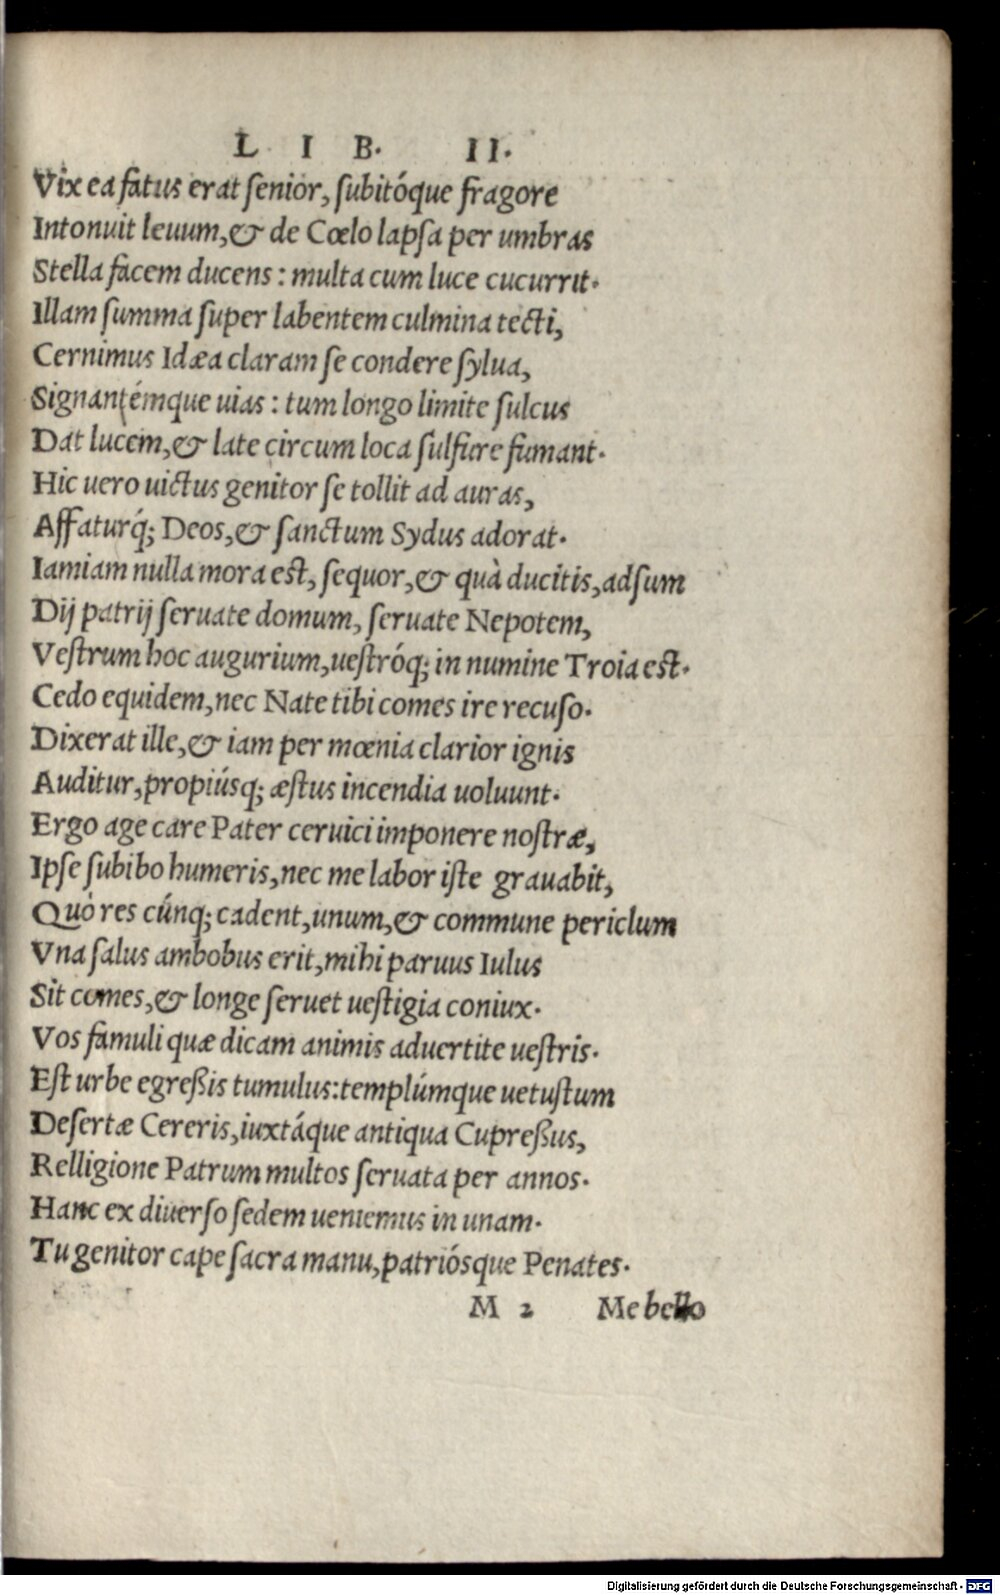 L I B. II.
Vix ea fatus erat ſenior, ſubitóque fragore
Intonuit leuum, & de Cœlo lapſa per umbras
Stella facem ducens : multa cum luce cucurrit.
Illam ſumma ſuper labentem culmina tecti,
Cernimus Idæa claram ſe condere ſylua,
Signantémque uias : tum longo limite ſulcus
Dat lucem, & late circum loca ſulfure fumant.
Hic uero uictus genitor ſe tollit ad auras,
Affaturq́; Deos, & ſanctum Sydus adorat.
Iamiam nulla mora eſt, ſequor, & quà ducitis, adſum
Dij patrij ſeruate domum, ſeruate Nepotem,
Veſtrum hoc augurium, ueſtróq; in numine Troia eſt.
Cedo equidem, nec Nate tibi comes ire recuſo.
Dixerat ille, & iam per mœnia clarior ignis
Auditur, propiúsq; æſtus incendia uoluunt.
Ergo age care Pater ceruici imponere noſtræ,
Ipſe ſubibo humeris, nec me labor iſte grauabit,
Quò res cúnq; cadent, unum, & commune periclum
Vna ſalus ambobus erit, mihi paruus Iulus
Sit comes, & longe ſeruet ueſtigia coniux.
Vos famuli quæ dicam animis aduertite ueſtris.
Eſt urbe egreßis tumulus: templúmque uetuſtum
Deſertæ Cereris, iuxtáque antiqua Cupreßus,
Relligione Patrum multos ſeruata per annos.
Hanc ex diuerſo ſedem ueniemus in unam.
Tu genitor cape ſacra manu, patriósque Penates.
M 2 Me bello
Digitalisierung gefördert durch die Deutsche Forschungsgemeinschaft - DFG